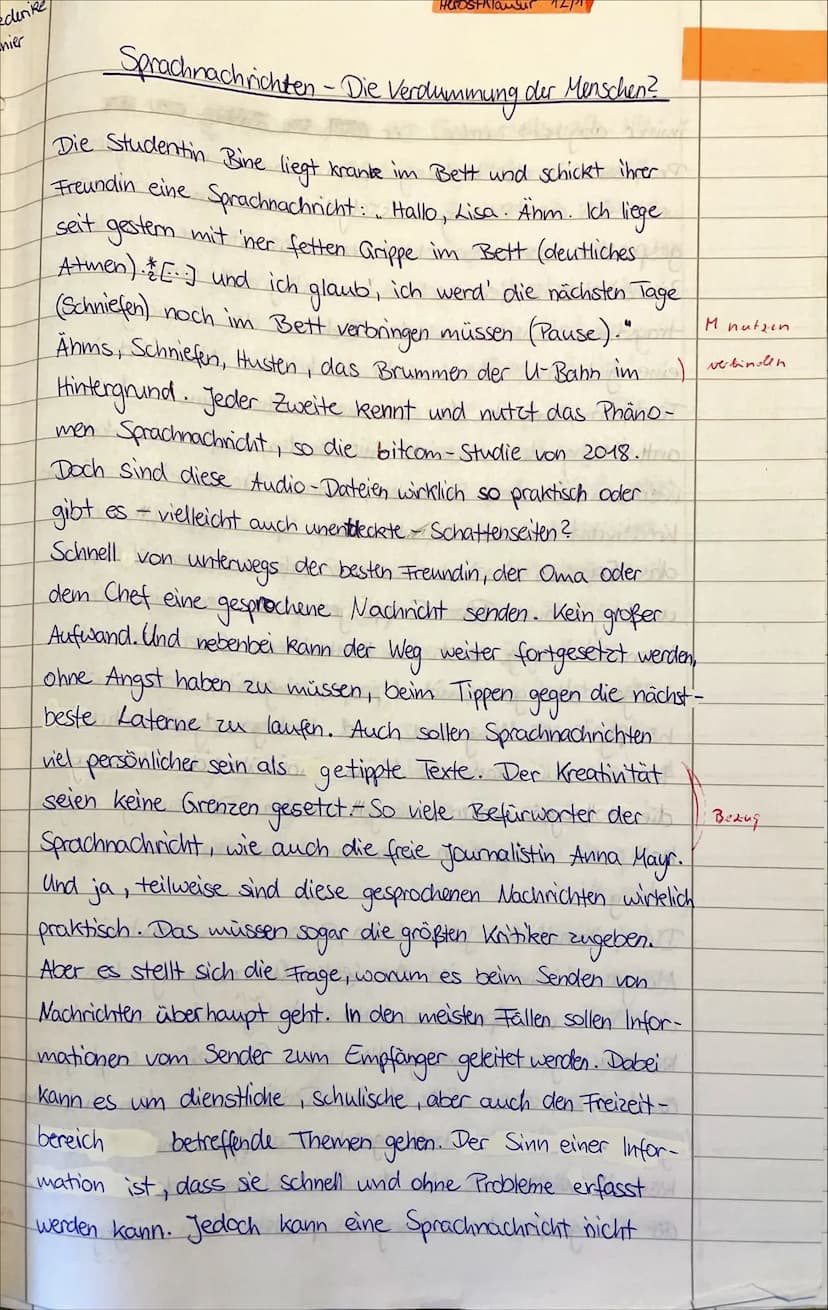 Herbstklausur 12/1
Sprachnachrichten – Die Verdummung der Menschen?
Die Studentin Bine liegt krank im Bett und schickt ihrer
Freundin eine Sprachnachricht: „Hallo, Lisa. Ähm. Ich liege
seit gestern mit 'ner fetten Grippe im Bett (deutliches
Atmen). [...] und ich glaub', ich werd' die nächsten Tage
(Schniefen) noch im Bett verbringen müssen (Pause)."
M nutzen
Ähms, Schniefen, Husten, das Brummen der U-Bahn im
verbinden
Hintergrund. Jeder Zweite kennt und nutzt das Phäno-
men Sprachnachricht, so die bitcom-Studie von 2018.
Doch sind diese Audio-Dateien wirklich so praktisch oder
gibt es – vielleicht auch unentdeckte – Schattenseiten?
Schnell von unterwegs der besten Freundin, der Oma oder
dem Chef eine gesprochene Nachricht senden. Kein großer
Aufwand. Und nebenbei kann der Weg weiter fortgesetzt werden,
ohne Angst haben zu müssen, beim Tippen gegen die nächst-
beste Laterne zu laufen. Auch sollen Sprachnachrichten
viel persönlicher sein als getippte Texte. Der Kreativität
seien keine Grenzen gesetzt. – So viele Befürworter der
Bezug
Sprachnachricht, wie auch die freie Journalistin Anna Mayr.
Und ja, teilweise sind diese gesprochenen Nachrichten wirklich
praktisch. Das müssen sogar die größten Kritiker zugeben.
Aber es stellt sich die Frage, worum es beim Senden von
Nachrichten überhaupt geht. In den meisten Fällen sollen Infor-
mationen vom Sender zum Empfänger geleitet werden. Dabei
kann es um dienstliche, schulische, aber auch den Freizeit-
bereich betreffende Themen gehen. Der Sinn einer Infor-
mation ist, dass sie schnell und ohne Probleme erfasst
werden kann. Jedoch kann eine Sprachnachricht nicht